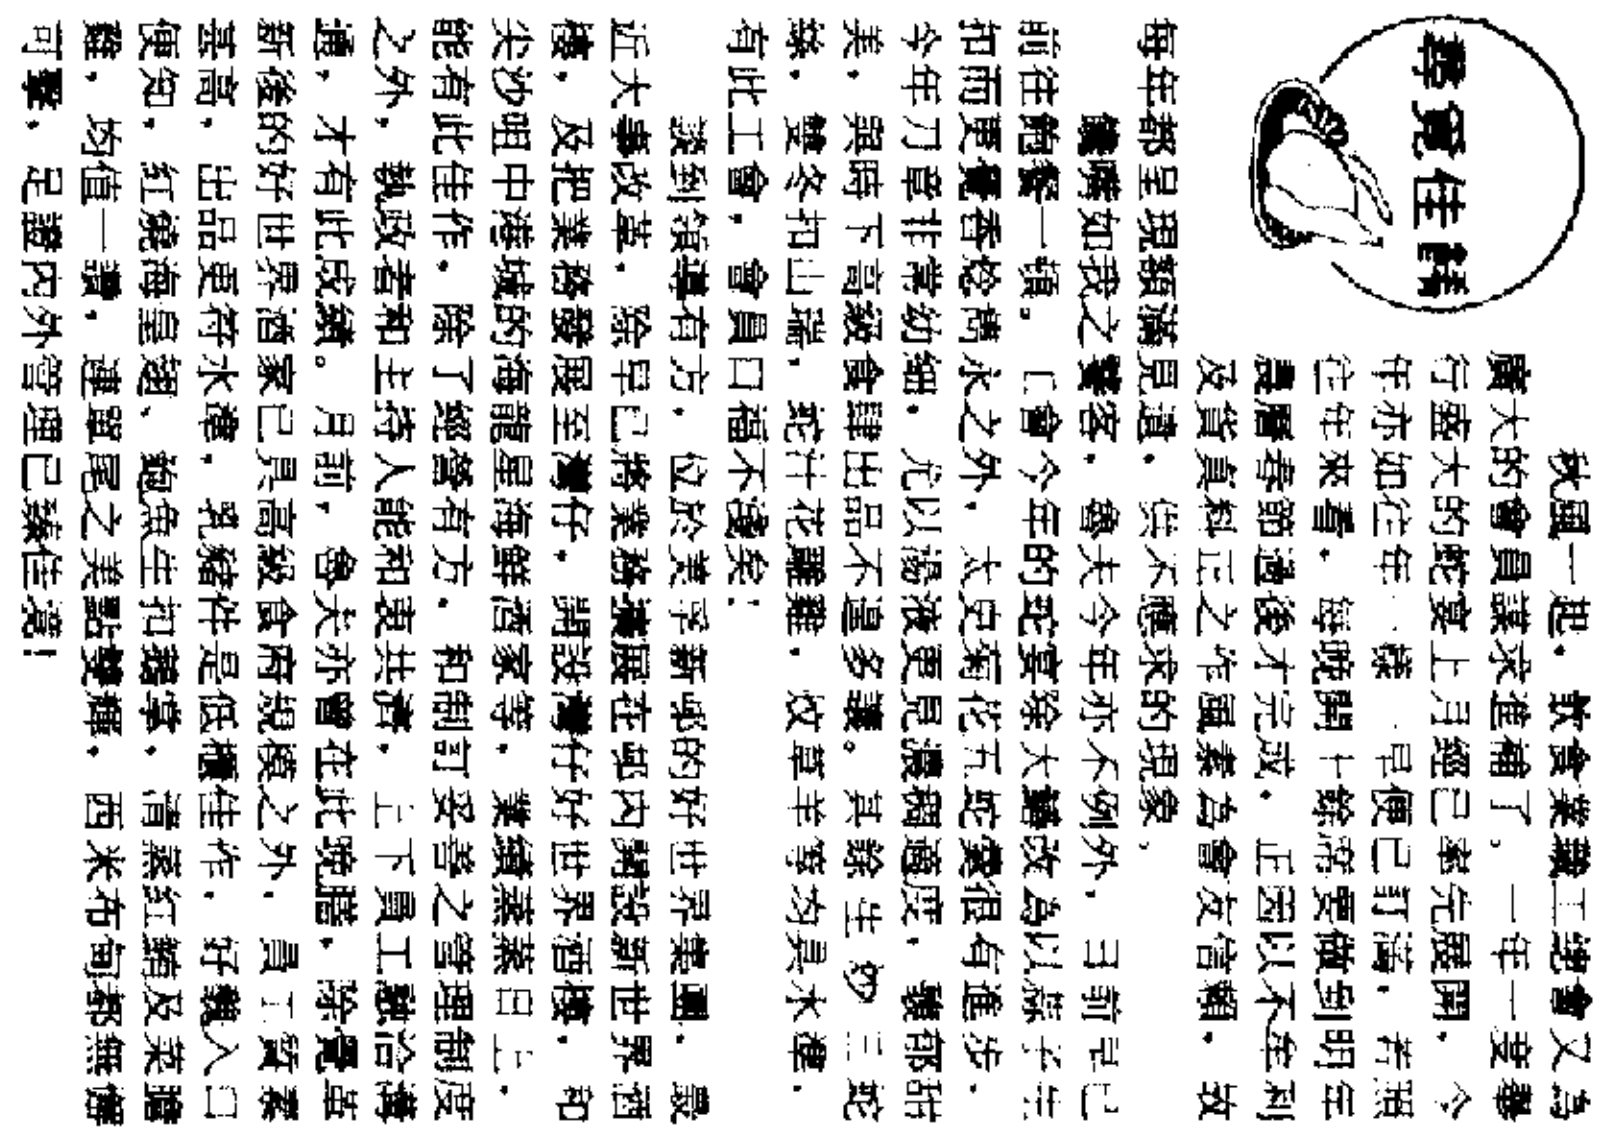 尋覓佳餚
秋風一起，飲食業職工總會又為
廣大的會員謀求進補了。一年一度舉
行盛大的蛇宴上月經已率先展開，今
年亦如往年一樣，早便已訂滿，若照
往年來看，每晚開十餘席要做到明年
農曆春節過後才完成。正因以不牟利
及貨真料正之作風素為會友信賴，故
每年都呈現額滿見遺，供不應求的現象。
饞嘴如我之饕客，魯夫今年亦不例外，日前早已
前往飽餐一頓。工會今年的蛇宴除大改為以蒜子生
扣而更覺香雋永之外，太史菊花五蛇羹很有進步，
今年刀章非常幼細，尤以湯液更見濃稠適度，馥郁甜
美，與時下高級食肆出品不遑多讓。其餘生炒三蛇
絲，雙冬扣山瑞，蛇汁花雕雞，炆草羊等均具水準，
有此工會，會員口福不淺矣！
談到領導有方，位於美孚新邨的好世界集團，最
近大事改革，除早已將業務擴展在邨內開設新世界酒
樓，及把業務發展至灣仔，開設灣仔好世界酒樓，和
尖沙咀中港城的海龍星海鮮酒家等，業績蒸蒸日上，
能有此佳作，除了經營有方，和制訂妥善之管理制度
之外，執政者和主持人能和衷共濟，上下員工融洽溝
通，才有此成績。月前，魯夫亦曾在此晚膳，除覺革
新後的好世界酒家已具高級食府規模之外，員工質素
甚高，出品更符水準，乳豬件是低佳作，好醜入口
便知，紅燒海皇翅、鮑魚生扣鵝掌，清蒸紅及菜膽
雞，均值一讚，連單尾之美點雙輝，西米布甸都無懈
可擊，足證內外管理已臻佳境！